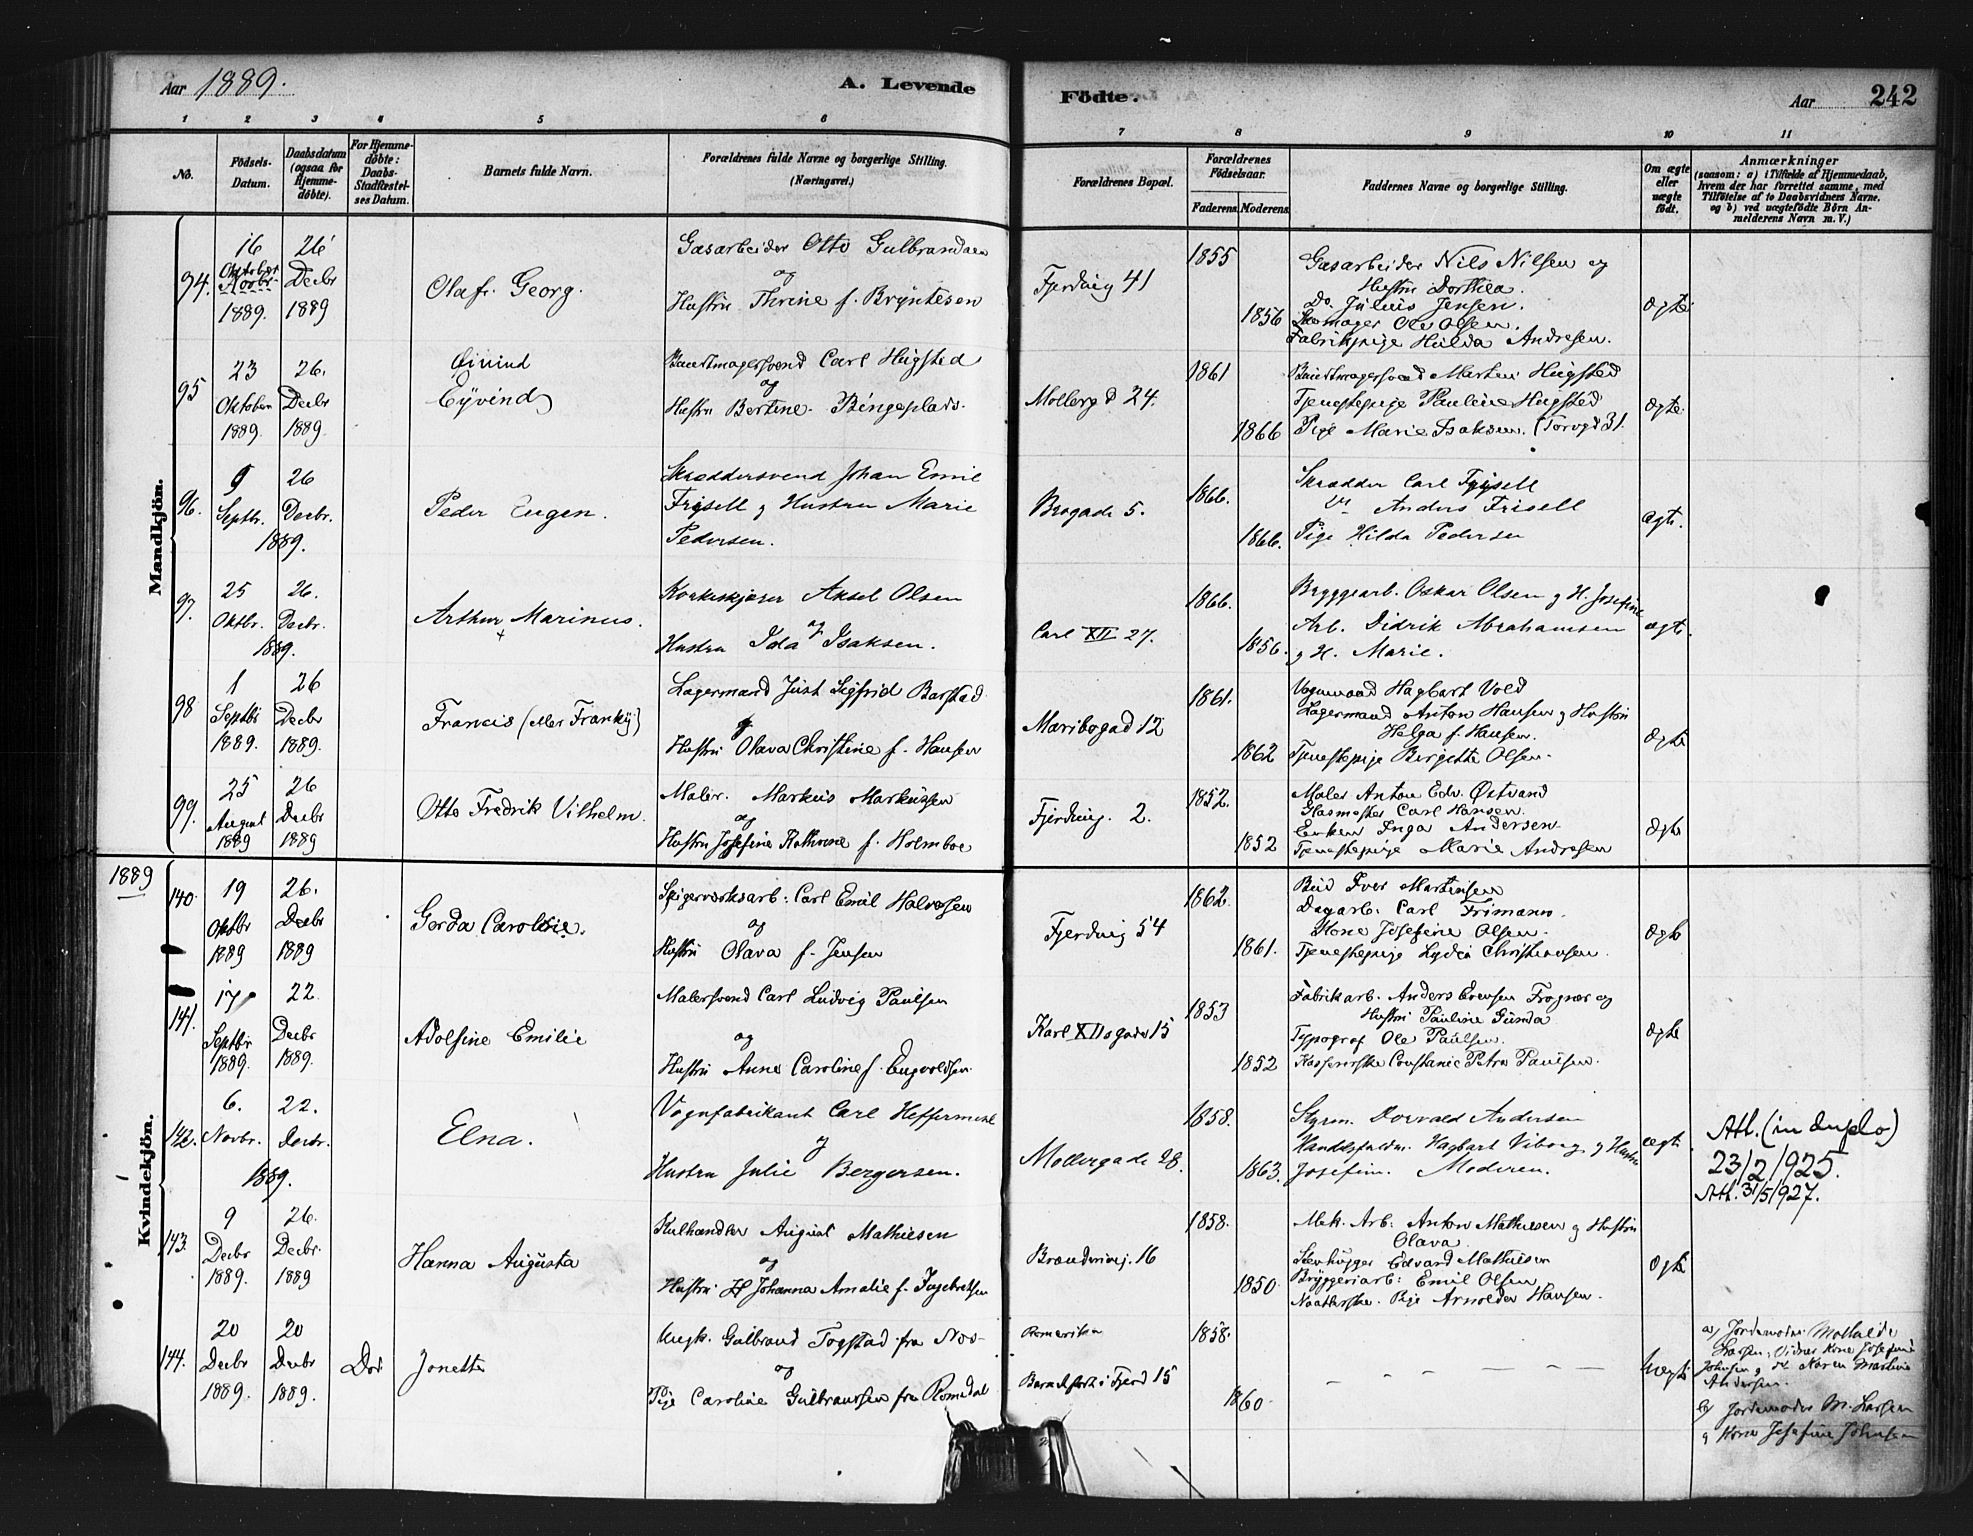 Aar 1889.
A. Levende
Födte.
Aar
242
1 2 3 4 5 6 7 8 9 10 11
No.
Födsels-
Datum.
Daabsdatum
(ogsaa for
Hjemme-
døbte).
For Hjemme-
døbte:
Daabs-
Stadfæstel-
ses Datum.
Barnets fulde Navn.
Forældrenes fulde Navne og borgerlige Stilling.
(Næringsvei.)
Forældrenes Bopæl.
Forældrenes
Födselsaar.
Faderens. Moderens.
Faddernes Navne og borgerlige Stilling.
Om ægte
eller
uægte
födt.
Anmærkninger
(saasom: a) i Tilfælde af Hjemmedaab,
hvem der har forrettet samme, med
Tilföielse af to Daabsvidners Navne,
og b) ved uægtefödte Börn An-
melderens Navn m. V.)
Mandkjön.
94.
16
Oktober
Novbr.
1889.
26
Decbr
1889
Olaf Georg.
Gasarbeider Otto Gulbrandsen
og
Hustru Thrine f. Bryntesen
Fjerding 41
1855
1856
Gasarbeider Nils Nilsen og
Hustru Dorthea.
Do. Julius Jensen.
Skomager Ole Olsen.
Fabrikpige Hulda Andresen.
ægte
95
23
Oktober
1889.
26.
Decbr
1889.
Øivind
Eyvind
Buntmagersvend Carl Hugsted
og
Hustru Bertine Bingeplads.
Møllergd 24.
1861
1866
Buntmagersvend Martin Hugsted
Tjenestepige Pauline Hugsted
Pige Marie Isaksen. (Torvgd 31.
ægte
96.
9
Septbr.
26
Decbr.
1889.
Peder Eugen.
Skræddersvend Johan Emil
Frisell og Hustru Marie
Pedersen.
Brogade 5.
1866.
1866.
Skrædder Carl Frisell
Anders Frisell
Pige Hilda Pedersen
ægte.
97.
25
Oktbr.
26.
Decbr.
1889.
Arthur Marinus.
Aksel Olsen
og
Hustru Ida Isaksen.
Carl XII 27.
1866.
1856.
Bryggearb. Oskar Olsen og H. Josefine
Arb. Didrik Abrahamsen
og H. Marie.
ægte.
98
1
Septbr
1889.
26
Decbr
1889.
Francis (eller Franky)
Lagermand Just Sigfrid Barstad
og
Hustru Olava Christine f. Hansen
Maribogad 12
1861.
1862
Vognmand Hagbart Vold
Lagermand Anton Hansen og Hustru
Helga f. Hansen.
Tjenestepige Birgitte Olsen.
ægte
99.
25
August
1889
26
Decbr
1889
Otto Fredrik Vilhelm.
Maler. Markus Markussen
og
Hustru Josefine Kathrine f. Holmboe
Fjerding. 2.
1852.
1852
Maler Anton Edv. Østvand
Glasmester Carl Hansen.
Enken Inga Andersen
Tjenestepige Marie Andresen
ægte
1889
Kvindekjön.
140.
19
Oktbr
1889
26.
Decbr
1889
Gerda Caroline.
Spigerværksarb: Carl Emil Halvorsen
og
Hustru Olava f. Jensen
Fjerding 54
1862.
1861.
Bud Iver Martinsen
Dagarb. Carl Frimann.
Kone Josefine Olsen.
Tjenestepige Lydia Christensen.
ægte
141.
17
Septbr
1889.
22.
Decbr
1889.
Adolfine Emilie
Malersvend Carl Ludvig Paulsen
og
Hustru Anne Caroline f. Engvoldsen.
Karl XIIs gade 15
1853
1852
Fabrikarb. Anders Evensen Frogner og
Hustru Pauline Gunda
Typograf Ole Paulsen.
Kassererske Constance Petra Paulsen.
ægte
142.
6.
Novbr.
22.
Decbr.
1889.
Elna.
Vognfabrikant Carl Heffermehl
og
Hustru Julie Bergersen.
Møllergade 28.
1858.
1863.
Styrm. Dorvald Andersen
Hagbart Viborg og Hustru
Josefine. Moderen.
ægte
Att. (in duplo)
23/2 1925.
Att. 31/5 1927.
143.
9
Decbr
1889.
26.
Decbr.
1889
Hanna Augusta
Kulhandler August Mathiesen
og
Hustru Johanna Amalie f. Ingebretsen
Brænderivej. 16
1858.
1850
Mek. Arb: Anton Mathiesen og Hustru
Olava.
Stenhugger Edvard Mathiesen
Bryggeriarb: Emil Olsen
Pige Arnolda Hansen.
ægte
144.
20
Decbr
1889.
20
Decbr
1889.
Død
Jonette
Ungk. Gulbrand Togstad fra Næs-
og
Pige Caroline Gulbrandsen fra Romedal
Romerike
Barnet født i Fjerd 15
1858.
1860.
Uægte
a) Jordemoder Mathilde
Larsen, Vidner Kone Josefine
Johnsen og Karen Martine
Andersen.
b) Jordemoder M. Larsen
og Kone Josefine Johnsen